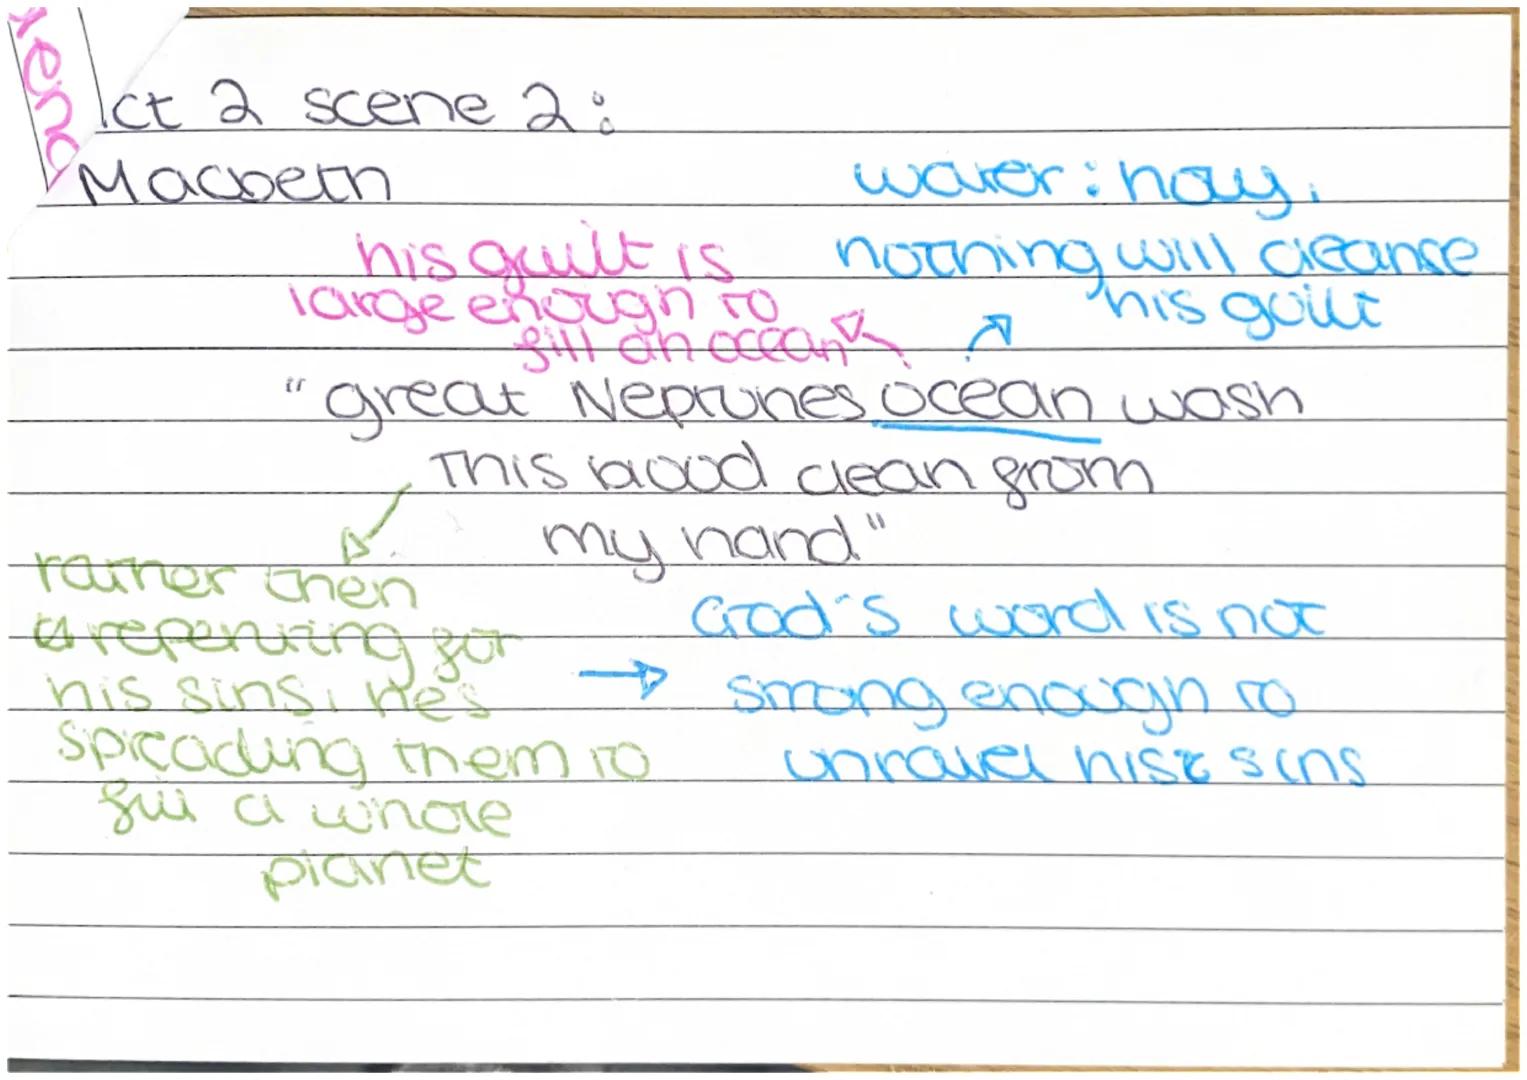 ct 2 scene 2:
Macbeth
water: holy,
nothing will cleanse
his guilt
his guilt is
large enough to
fill an ocean
"great Neptunes ocean wash
This blood clean from
my hand"
rather then
repenting for
his sins, hes
spreading them to
fill a whole
planet
God's word is not
strong enough to
unravel his sins